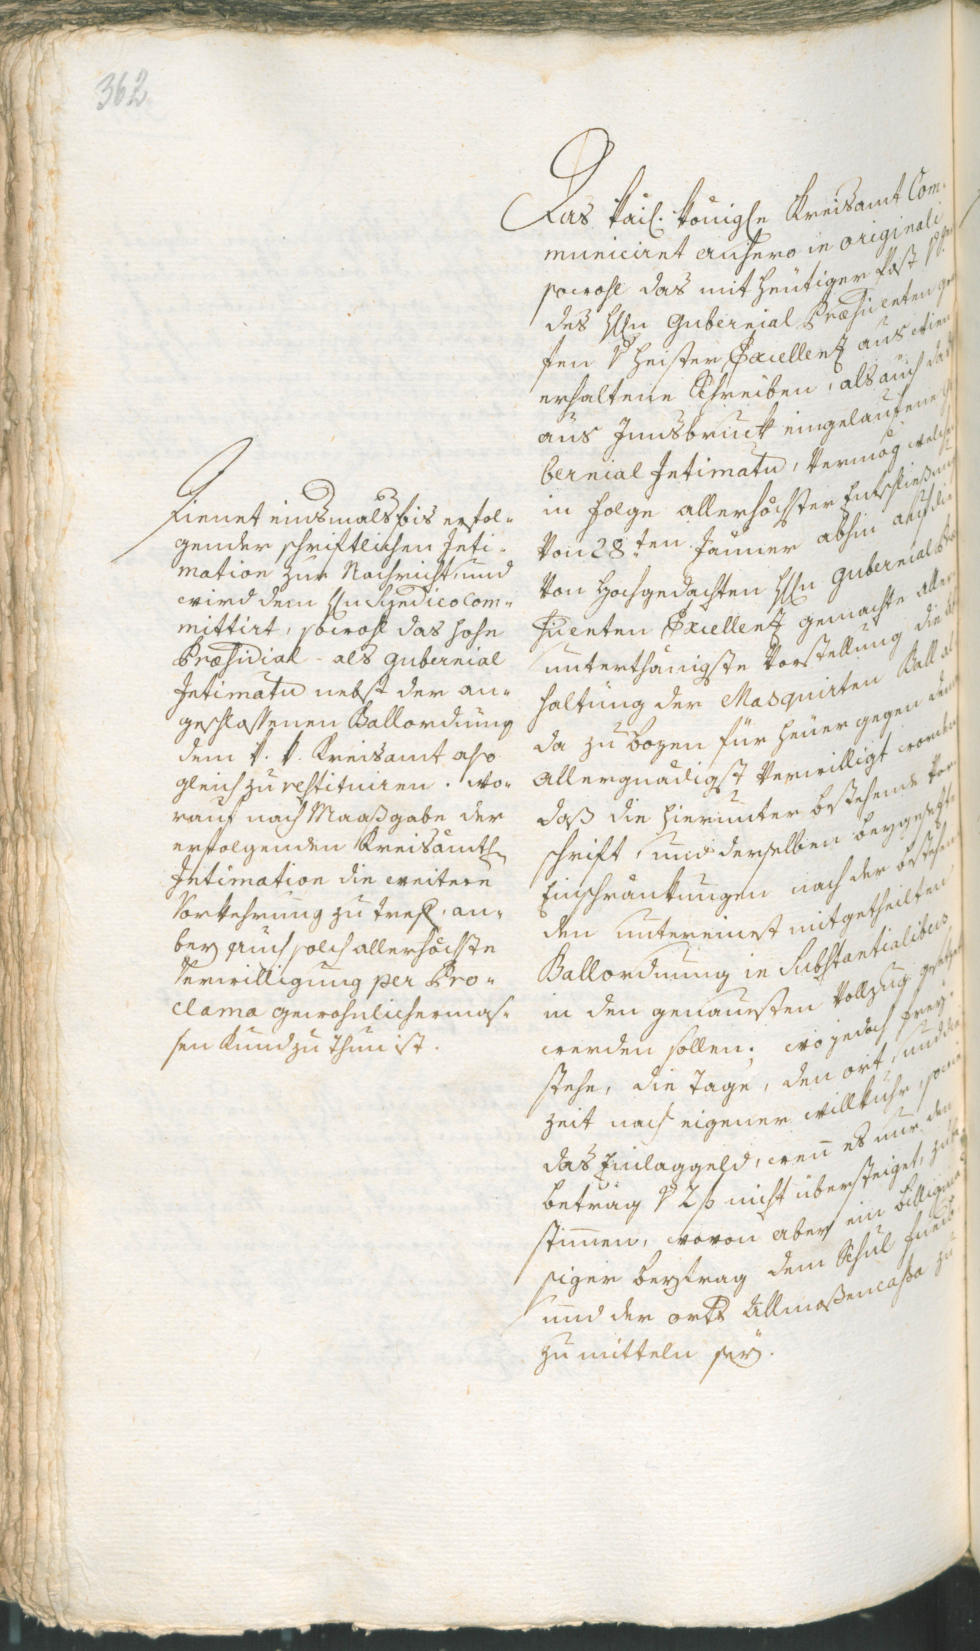 362
Das kais. königle Kreisamt Com-
municiret anhero in originali
sowohl das mit heutiger Post
des Hln Gubernial Præsidenten
fen v Heister Excellenz aus
erhaltene Schreiben, als auch das
aus Innsbruck eingelaufene
bernial Intimatu, vermög welche
in Folge allerhöchster Entschließung
von 28ten. Jänner abhin auf die
von Hochgedachten Hln Gubernial
sidenten Excellenz gemachte aller
unterthänigste Vorstellung die
haltung der Masquirten Ball al
da zu Bozen für heuer gegen dem
allergnädigst verwilligt worden
daß die hierunter bestehende Vor
schrift, und derselben beygesezte
Einschränkungen nach der bestehen
den untereinst mitgetheilten
Ballordnung in Substantialibus
in den genauesten Vollzug gesetzet
werden sollen; wo jedoch frey
stehe, die Tage, den ort, und die
zeit nach eigener willkuhr, sowie
das Einlaggeld, wenn es nur den
betrag v 2 f nicht übersteiget, zu be
stimmen, wovon aber ein billigmäs
siger beytrag dem Schul fund
und der orts Allmoßencassa zu
zu mitteln sey.
Dienet einsmals bis erfol-
gender schriftlichen Inti-
mation zur Nachricht, und
wird dem Hln Syndico Com-
mittirt, sowohl das hohe
Præsidial- als Gubernial
Intimatu nebst der an-
geschlossenen Ballordnung
dem k. k. Kreisamt also
gleich zu restituiren. wo-
rauf nach Maaßgabe der
erfolgenden Kreisämtl
Intimation die weitere
Vorkehrung zu tref, an-
bey auch solch allerhöchste
Verwilligung per Pro-
clama gewohnlichermas-
sen Kund zu thun ist.